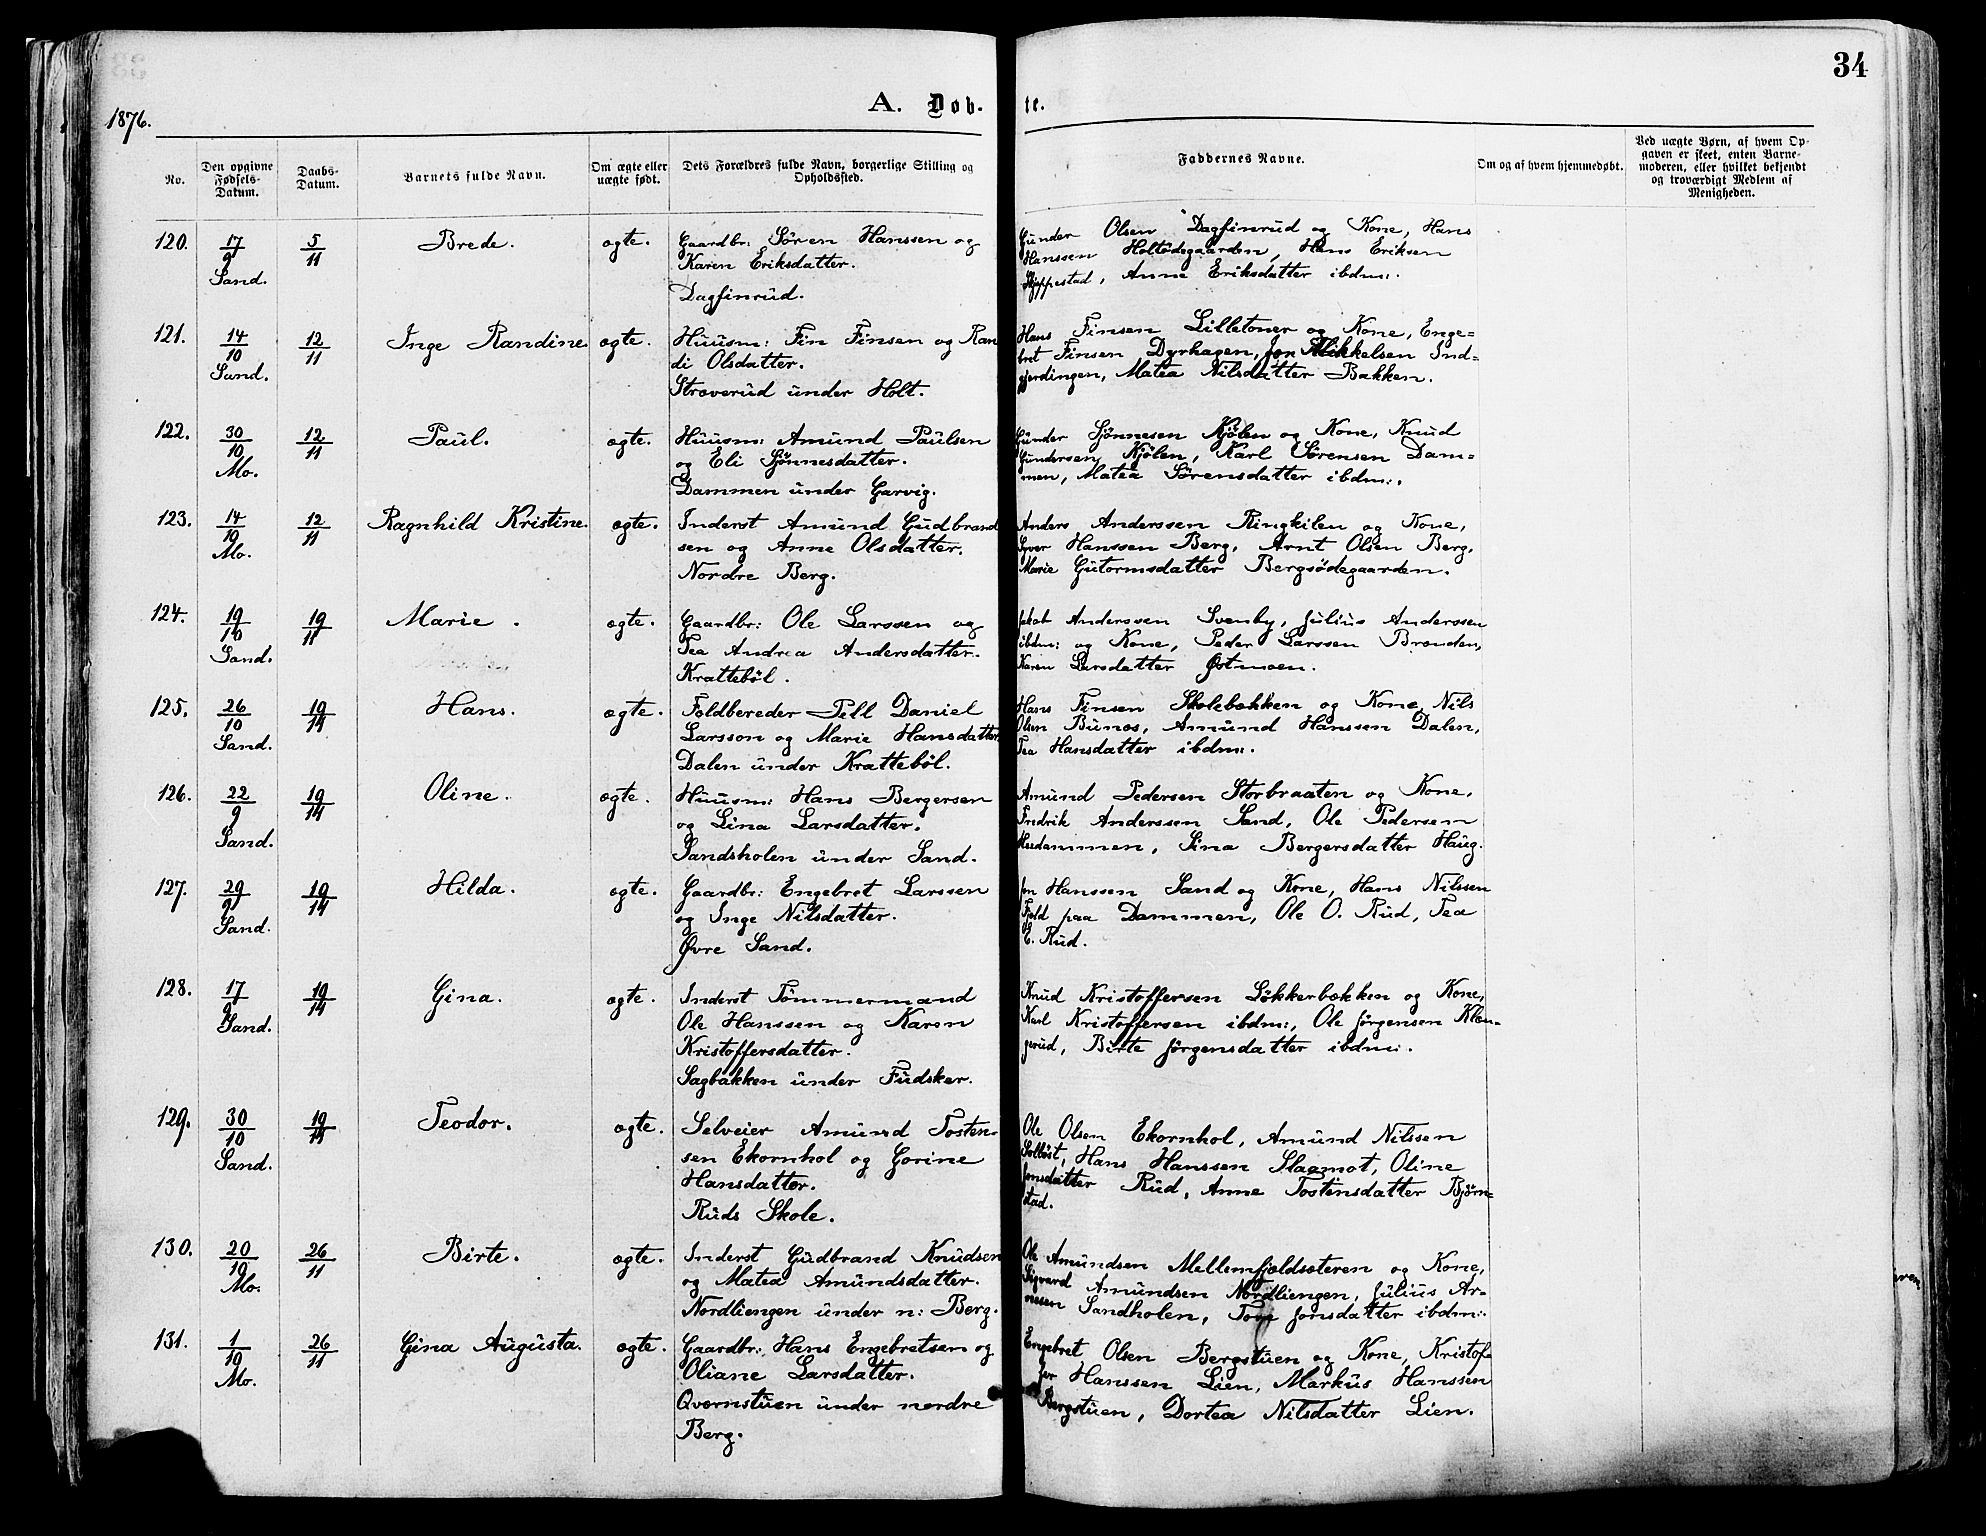 34
1876.
A. Døb- te.
No.
Den opgivne Fødsels-Datum.
Daabs-Datum.
Barnets fulde Navn.
Om ægte eller uægte født.
Dets Forældres fulde Navn, borgerlige Stilling og Opholdssted.
Faddernes Navne.
Om og af hvem hjemmedøbt.
Ved uægte Børn, af hvem Opgaven er skeet, enten Barnemoderen, eller hvilket bekjendt og troværdigt Medlem af Menigheden.
120. 17/9 Sand. 5/11 Brede. ægte.
Gaardbr: Sören Hanssen og
Karen Eriksdatter.
Dagfinrud.
Gunder Olsen Dagfinrud og Kone, Hans
Hanssen Holtödegaarden, Hans Eriksen
Skjeppestad, Anne Eriksdatter ibdm:.
121. 14/10 Sand. 12/11 Inge Randine ægte.
Huusm: Fin Finsen og Ran
di Olsdatter.
Straverud under Holt.
Hans Finsen Lilletoner og Kone, Enge=
bret Finsen Dyrhagen, Jon Mikkelsen Ind=
gjerdingen, Matea Nilsdatter Bakken.
122. 30/10 Mo. 12/11 Paul. ægte.
Huusm: Amund Paulsen
og Eli Sjönnesdatter.
Dammen under Garvig.
Gunder Sjönnesen Kjölen og Kone, Knud
Gundersen Kjölen, Karl Sörensen Dam=
men, Matea Sörensdatter ibdm:.
123. 14/10 Mo. 12/11 Ragnhild Kristine. ægte.
Inderst Amund Gudbrand
sen og Anne Olsdatter.
Nordre Berg.
Anders Anderssen Ringkilen og Kone,
Syver Hanssen Berg, Arnt Olsen Berg,
Marie Gutormsdatter Bergsödegaarden.
124. 19/10 Sand. 19/11 Marie. ægte.
Gaardbr: Ole Larssen og
Tea Andrea Andersdatter.
Kratteböl.
Jakob Anderssen Svenby, Julius Anderssen
ibdm: og Kone, Peder Larssen Brænden,
Karen Larsdatter Østmoen.
125. 26/10 Sand. 19/11 Hans. ægte.
Foldbereder Pell Daniel
Larsson og Marie Hansdatter
Dalen under Kratteböl.
Hans Finsen Skolebakken og Kone, Nils
Olsen Bunæs, Amund Hanssen Dalen,
Tea Hansdatter ibdm:.
126. 22/9 Sand. 19/11 Oline. ægte.
Huusm: Hans Bergersen
og Lina Larsdatter.
Sandsholen under Sand.
Amund Pedersen Storbraaten og Kone,
Fredrik Anderssen Sand, Ole Pedersen
Sina Bergersdatter Haug.
127. 29/9 Sand. 19/11 Hilda. ægte.
Gaardbr: Engebret Larssen
og Inge Nilsdatter.
Øvre Sand.
Jon Hanssen Sand og Kone, Hans Nilssen
Fjeld paa Dammen, Ole O. Rud, Tea
E. Rud.
128. 17/9 Sand. 19/11 Gina. ægte.
Inderst Tömmermand
Ole Hanssen og Karen
Kristoffersdatter.
Sagbakken under Fudsker.
Knud Kristoffersen Lökkerbakken og Kone,
Karl Kristoffersen ibdm:, Ole Jörgensen Klæn=
gerud, Birte Jörgensdatter ibdm:.
129. 30/10 Sand. 19/11 Teodor. ægte.
Selveier Amund Tosten-
sen Ekornhol og Gorine
Hansdatter.
Ruds Skole.
Ole Olsen Ekornhol, Amund Nilssen
Solløst, Hans Hanssen Slaamot, Oline
Jonsdatter Rud, Anne Tostensdatter Björn=
stad.
130. 20/10 Mo. 26/11 Birte. ægte.
Inderst Gudbrand Knudsen
og Matea Amundsdatter.
Nordliengen under n: Berg.
Ole Amundsen Mellemfjeldsæteren og Kone,
Sigvard Amundsen Nordliengen, Julius Ar-
nesen Sandholen, Tora Jonsdatter ibdm:.
131. 1/10 Mo. 26/11 Gina Augusta. ægte.
Gaardbr: Hans Engebretsen og
Oliane Larsdatter.
Qvernstuen under nordre
Berg.
Engebret Olsen Bergstuen og Kone, Kristof=
fer Hanssen Lien, Markus Hanssen
Bergstuen, Dortea Nilsdatter Lien.